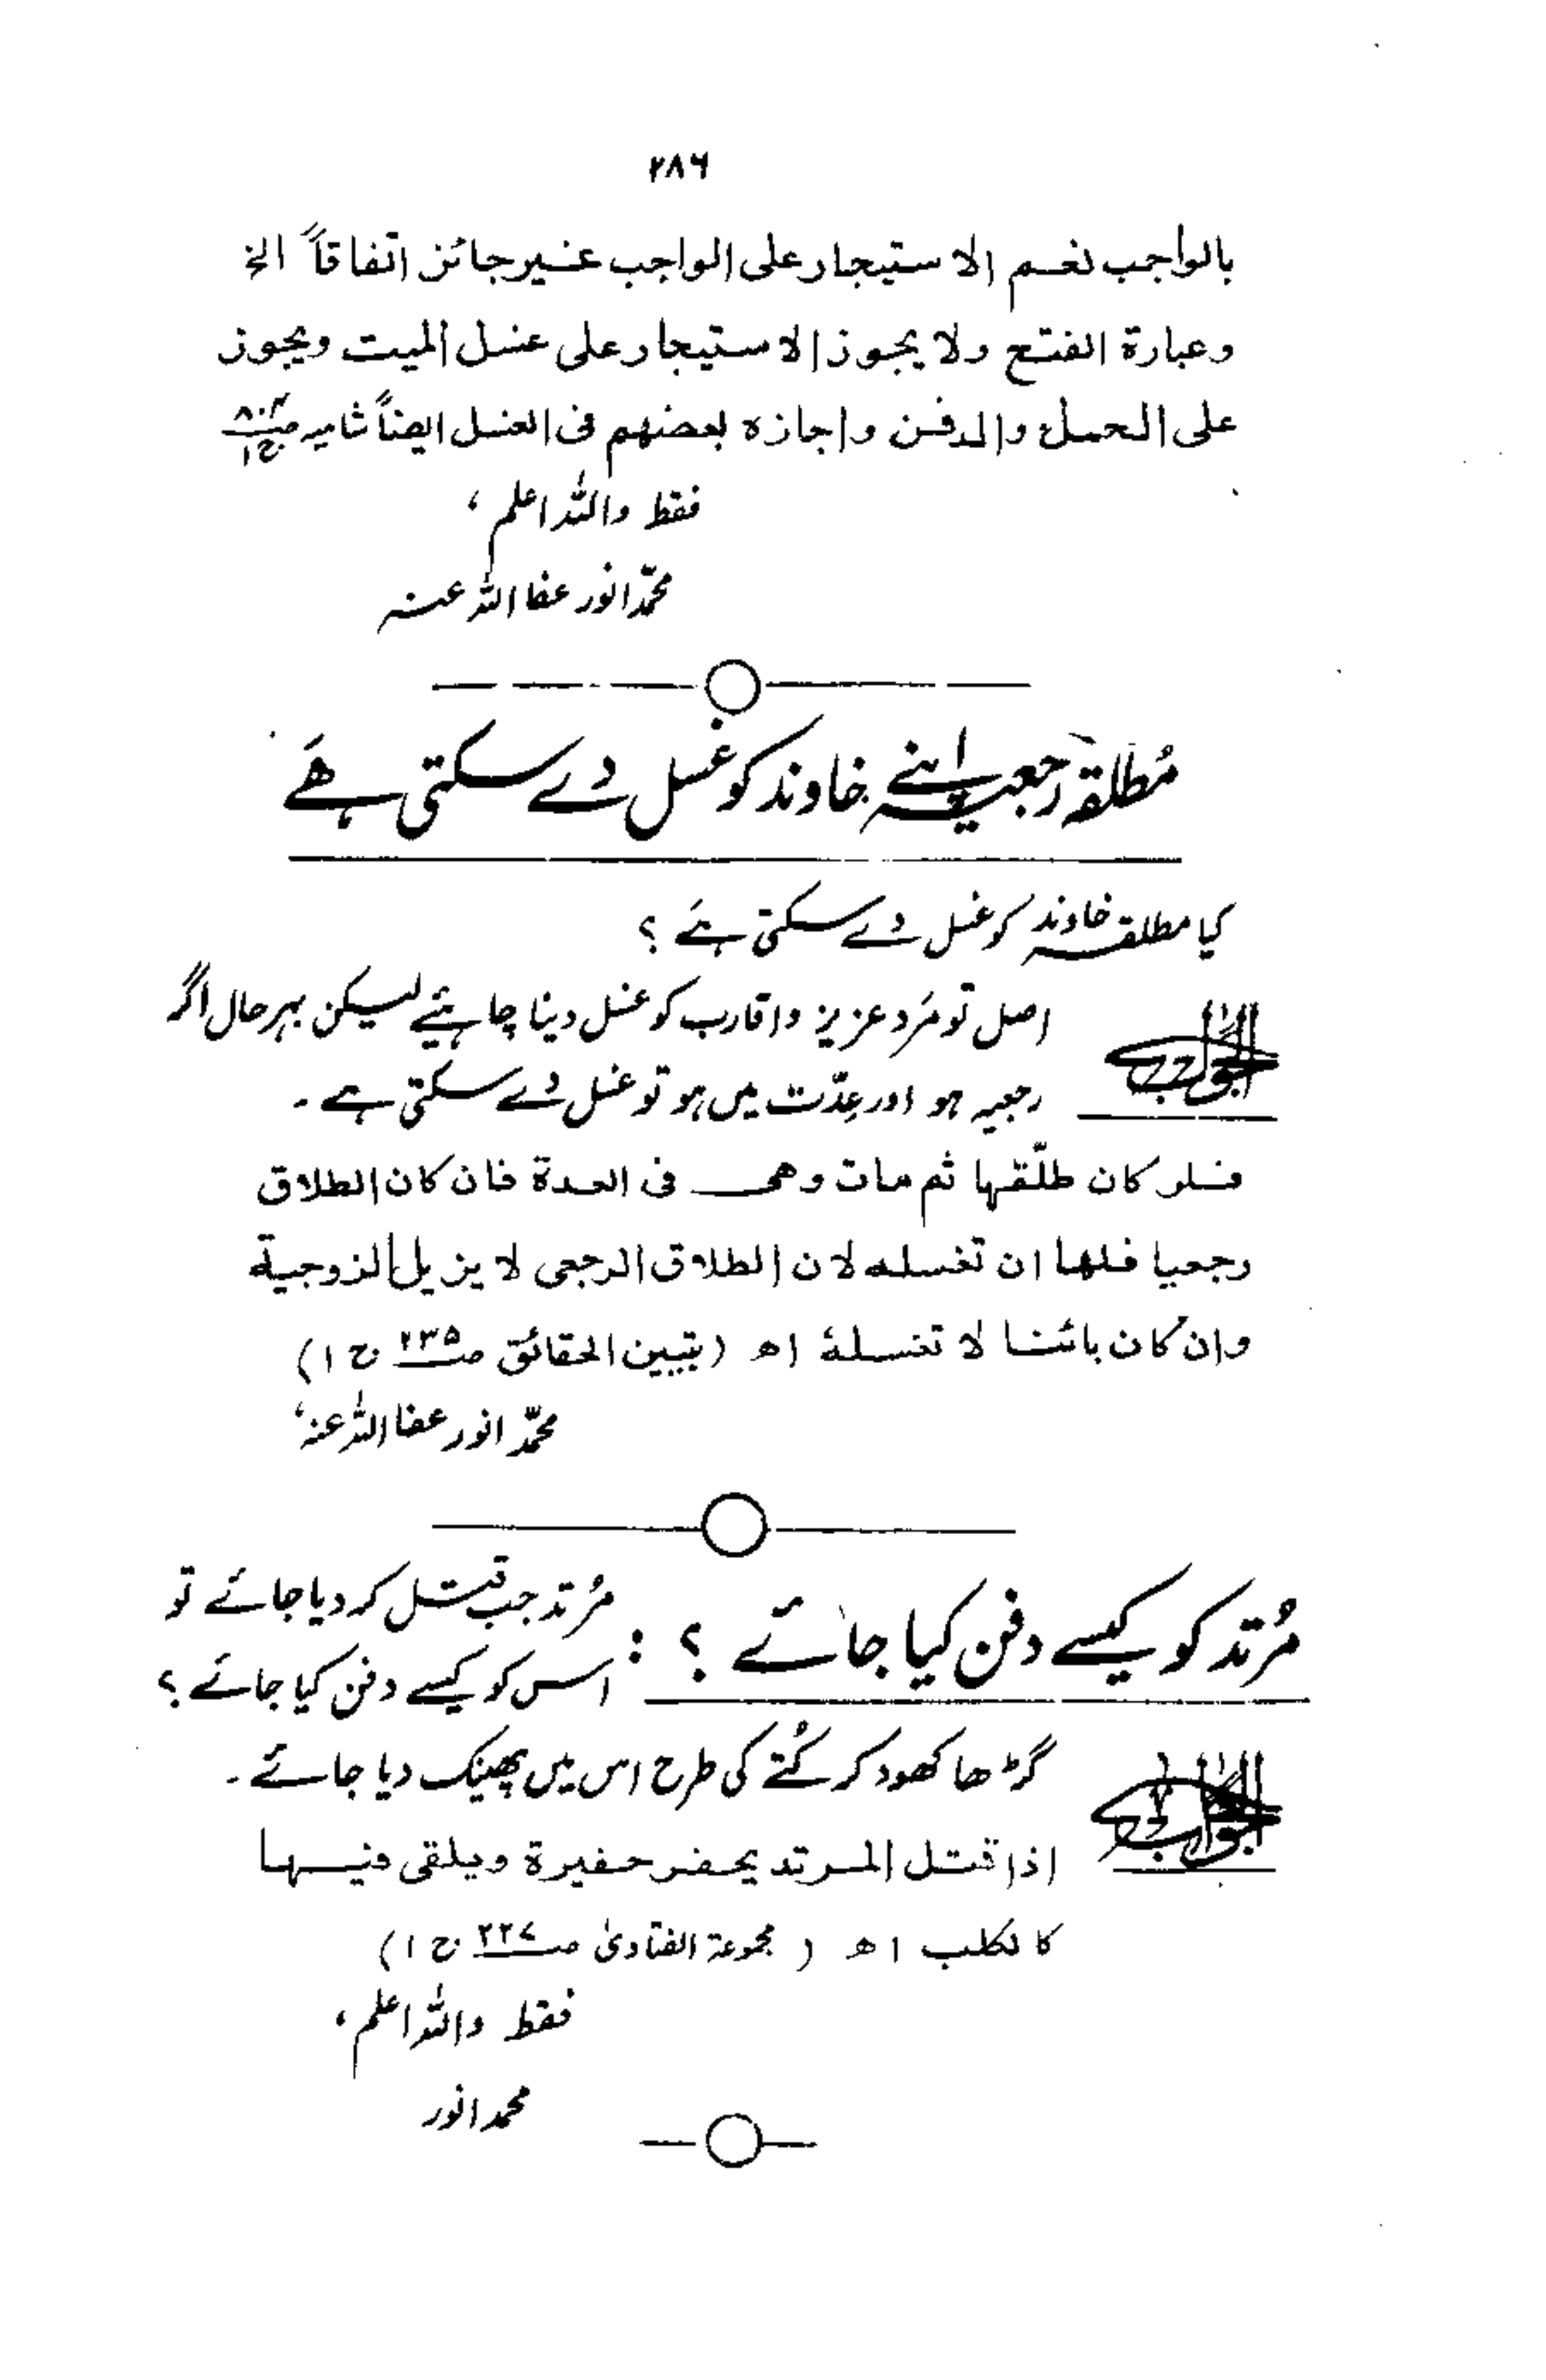 ۲۸۶
بالواجب نعم الاستیجار علی الواجب غیر جائز اتفاقاً الخ
وعبارة الفتح ولا یجوز الاستیجار علی غسل المیت ویجوز
علی الحمل والدفن واجازه بعضهم فی الغسل ایضاً شامیہ ج۱
فقط واللہ اعلم،
محمّد انور عفا اللہ عنہ
مُطلقہ رجعیہ اپنے خاوند کو غسل دے سکتی ہے
کیا مطلقہ خاوند کو غسل دے سکتی ہے ؟
الجواب
اصل تو مَرد عزیز واقارب کو غسل دینا چاہئیے لیکن بہرحال اگر
رجعیہ ہو اور عِدّت میں ہو تو غسل دے سکتی ہے ۔
فلو کان طلّقها ثم مات وهی فی العدة فان کان الطلاق
رجعیا فلها ان تغسله لان الطلاق الرجعی لا یزیل الزوجیة
وان کان بائنا لا تغسلهٗ اھ (تبیین الحقائق ص۲۳۵ ج ۱)
محمّد انور عفا اللہ عنہ،
مُرتد کو کیسے دفن کیا جائے ؟ : مُرتد جب قتل کر دیا جائے تو
اس کو کیسے دفن کیا جائے ؟
الجواب
گڑھا کھود کر کُتے کی طرح اس میں پھینک دیا جائے ۔
اذا قتل المرتد یحفر حفیرة ویلقی فیها
کالکلب اھ (مجموعۃ الفتاویٰ ص۲۲۷ ج ۱)
فقط واللہ اعلم،
محمد انور